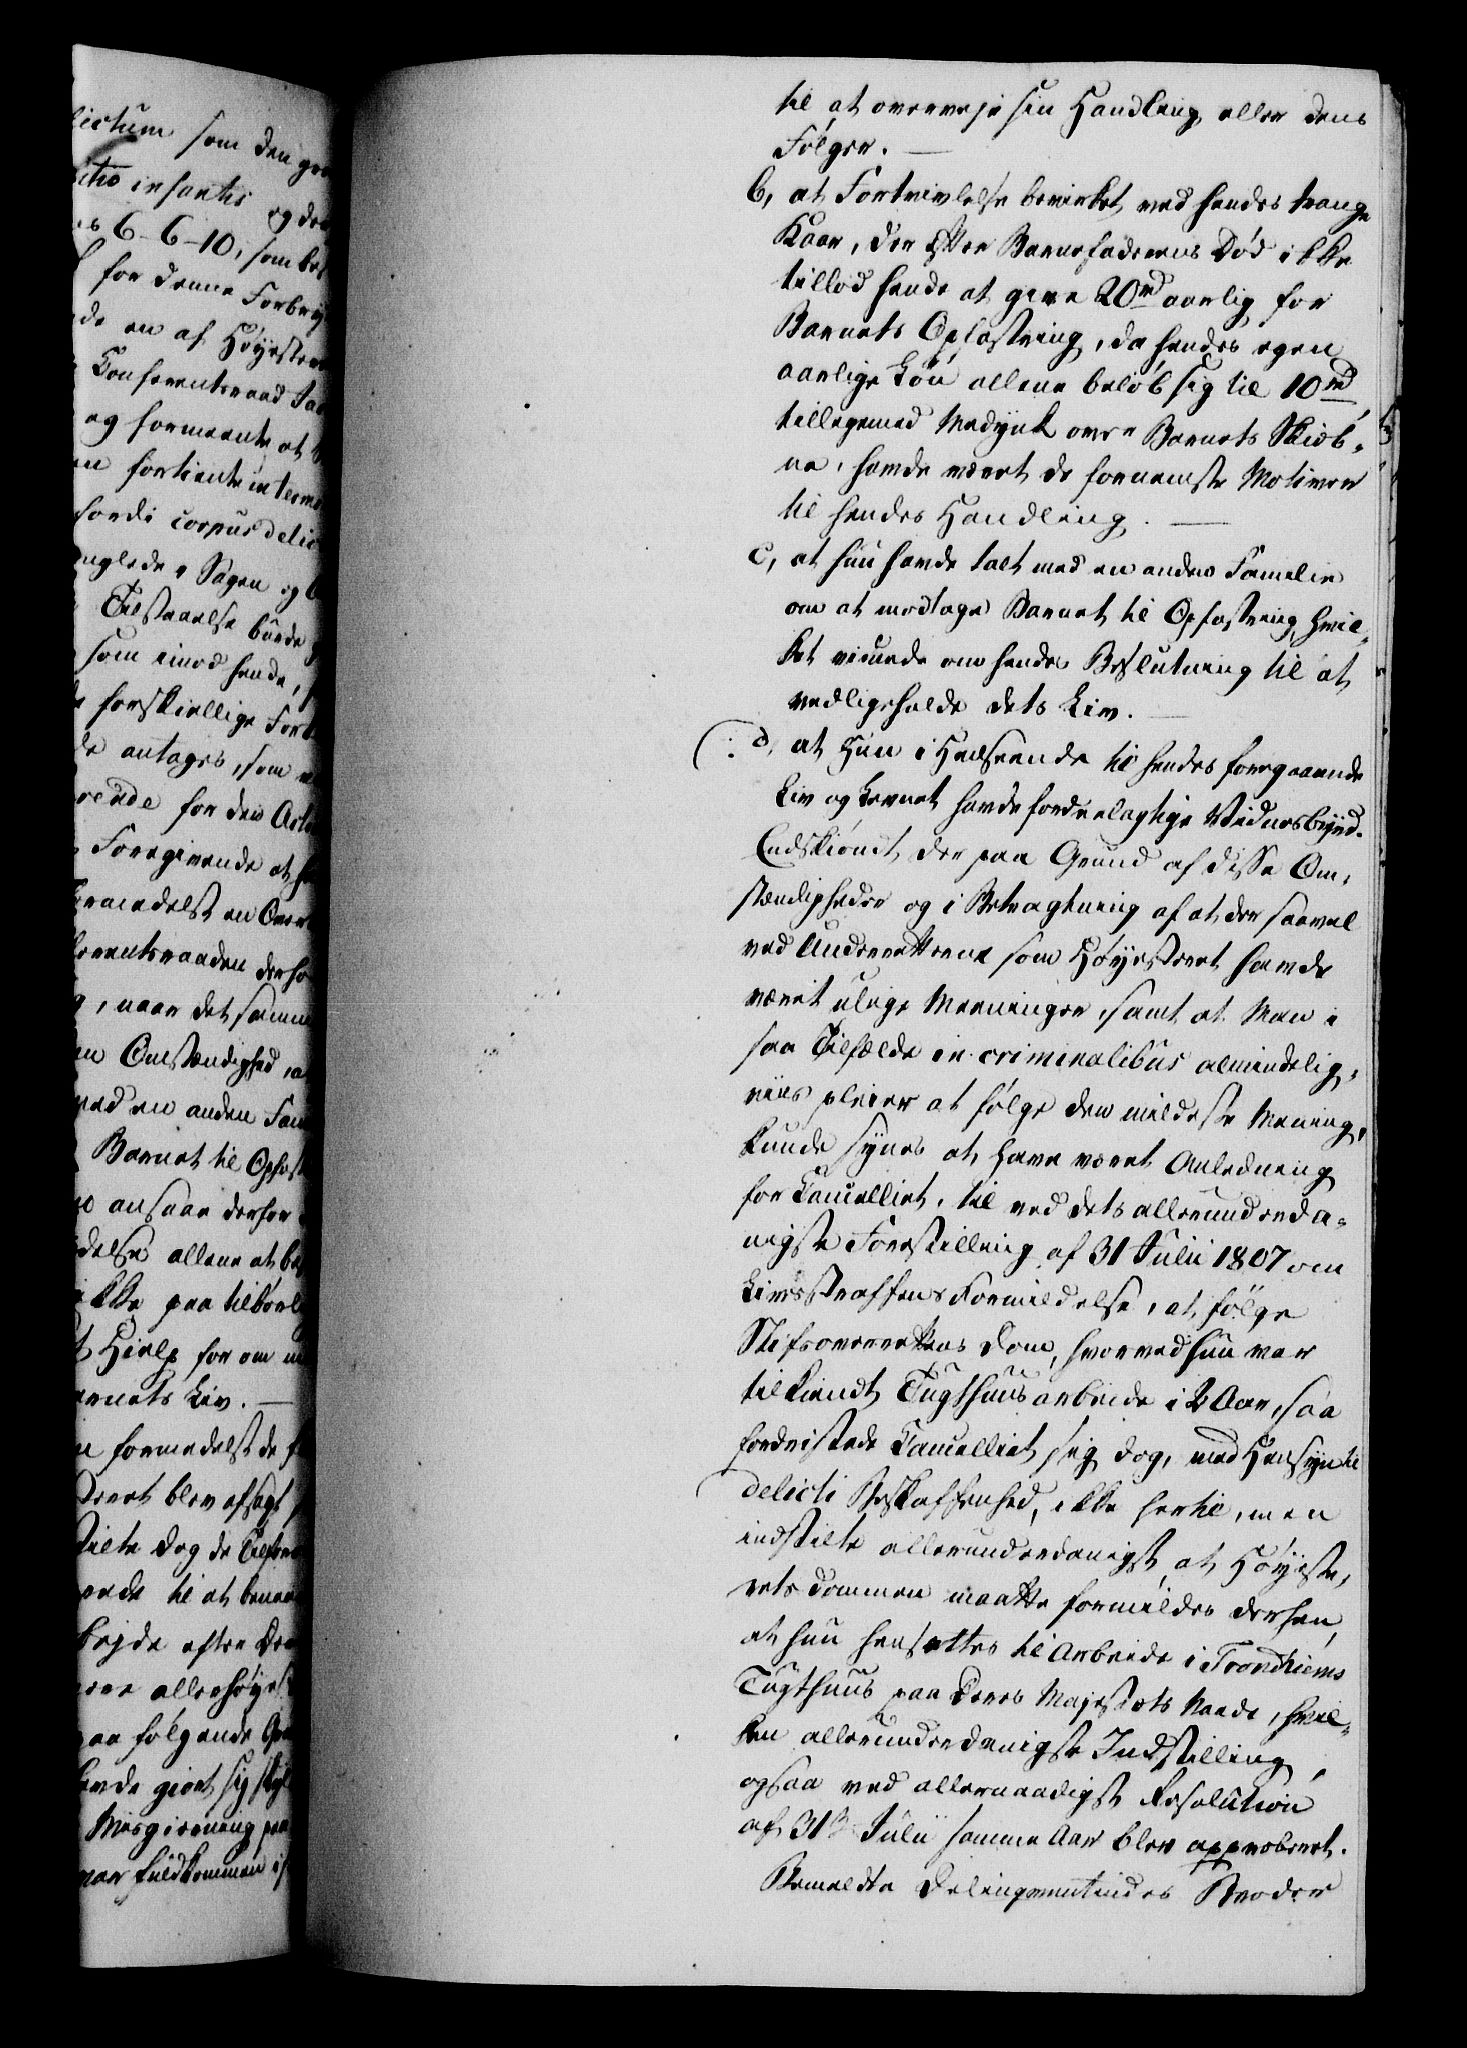 lictum som den gro
sitio infantis og der
es 6-6-10, som bes
for denne Forbry
de en af Höyester
Conferentsraad Ja
og formeente at
en fortiente in term
fordi corpus delic
nglede i Sagen og
Tilstaaelse burde
som imod hende,
forskiellige For
de antages, som
rende for den
Foregivende at
formedelst en
ferentsraaden derfo
, naar det samme
en Omstændighed, a
med en anden Fam
Barnet til Opfost
ansaae derfor
delse allene at
ikke paa tilbörl
t Hielp for om
arnets Liv. —
formedelst de
Dret blev afsagt
stilte dog de
rede til at benaa
beyde efter
allerhöyest
paa fölgende
havde giort sig skyl
Misgierning
var fuldkommen
til at overveje sin Handling eller dens
Fölger. —
b, at Fortvivlelse bevirket ved hendes trange
Kaar, der efter Barnefaderens Död ikke
tillod hende at give 20 rd aarlig for
Barnets Opfostring, da hendes egen
aarlige Lön allene belöb sig til 10 rd,
tillegemed Medynk over Barnets Skieb-
ne, havde været de fornemste Motiver
til hendes Handling. —
c, at hun havde talt med en anden Familie
om at modtage Barnet til Opfostring, hvil-
ket vidnede om hendes Beslutning til at
vedligeholde dets Liv. —
(: d, at hun i Henseende til hendes foregaaende
Liv og Levnet havde fordeelagtige Vidnesbyrd.
Endskiöndt der paa Grund af disse Om-
stændigheder og i Betragtning af at der saavel
ved Underretterne som Höyesteret havde
været ulige Meeninger, samt at Man i
saa Tilfælde in criminalibus almindelig-
viis pleier at fölge den mildeste Mening,
kunde synes at have været Anledning
for Cancelliet, til ved dets allerunderda-
nigste Forestilling af 31 Julii 1807 om
Livsstraffens Formildelse, at fölge
Stiftsoverrettens Dom, hvorved hun var
tilkiendt Tugthuusarbeide i 2 Aar, saa
fordristede Cancelliet sig dog, med Hensyn til
delicti Beskaffenhed, ikke hertil, men
indstilte allerunderdanigst, at Höyeste-
rets Dommen maatte formildes derhen,
at hun hensættes til Arbeide i Trondhiems
Tugthuus paa Deres Majestæts Naade, hvil-
ken allerunderdanigste Indstilling
ogsaa ved allernaadigst Resolution
af 31 Julii samme Aar blev approberet.
Bemeldte Delinqventindes Broder